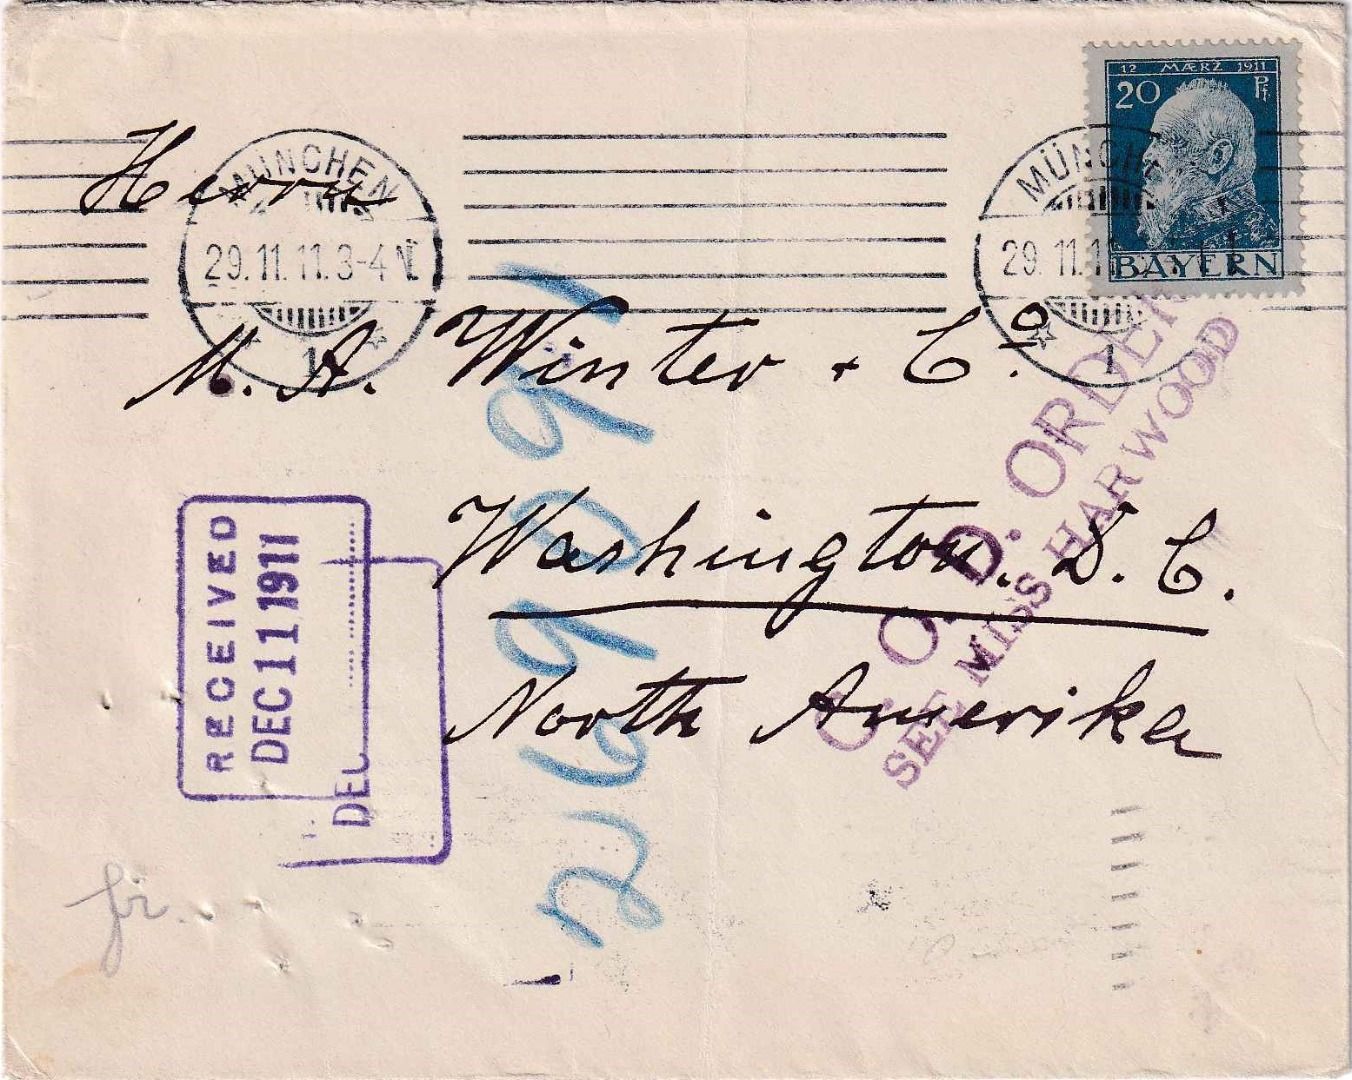 12 MÆRZ 1911
20 Pf
BAYERN
MÜNCHEN
29.11.11.3-4 N
1
MÜNCHEN
29.11.11
1
Herrn
M. A. Winter + Co.
Washington. D. C.
North Amerika
C. O. D. ORDER
SEE MISS HARWOOD
RECEIVED
DEC 11 1911
DEC